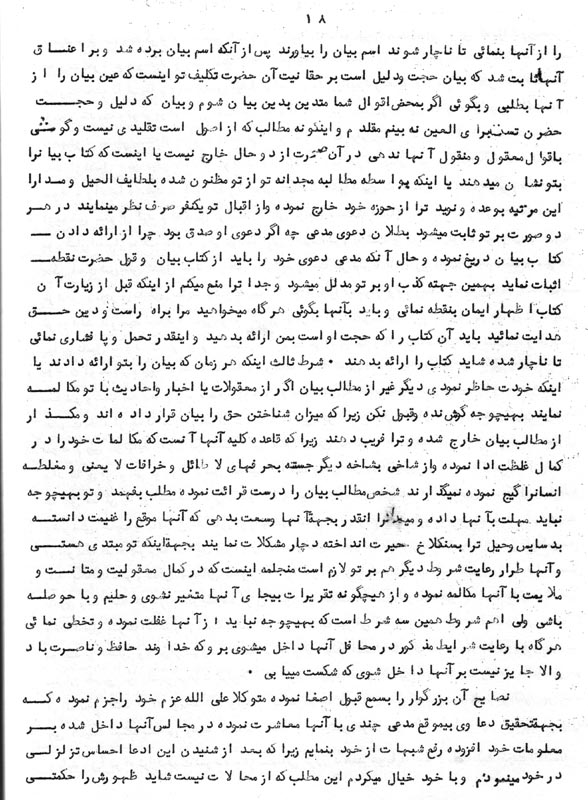 ۱۸
را از آنها بنمائی تا ناچار شوند اسم بیان را بیاورند پس از آنکه اسم بیان برده شد و بر اعناق
آنها ثابت شد که بیان حجت و دلیل است بر حقانیت آن حضرت تکلیف تو اینست که عین بیان را از
آنها بطلبی و بگوئی اگر بمحض اقوال شما متدین بدین بیان شوم و بیان که دلیل و حجت
حضرت است برای العین نه بینم مقلدم و اینگونه مطالب که از اصول است تقلیدی نیست و گوشی
باقوال معقول و منقول آنها ندهی در آن صورت از دو حال خارج نیست یا اینست که کتاب بیانرا
بتو نشان میدهند یا اینکه بواسطه مطالبه مجدانه تو از تو مظنون شده بلطایف الحیل و مدارا
این مرتبه بوعده و نوید ترا از حوزه خود خارج نموده و از اقبال تو یکنفر صرف نظر مینمایند در هر
دو صورت بر تو ثابت میشود بطلان دعوی مدعی چه اگر دعوی او صدق بود چرا از ارائه دادن
کتاب بیان دریغ نموده و حال آنکه مدعی دعوی خود را باید از کتاب بیان و قول حضرت نقطه
اثبات نماید بهمین جهته کذب او بر تو مدلل میشود و جدا ترا منع میکنم از اینکه قبل از زیارت آن
کتاب اظهار ایمان بنقطه نمائی و باید بآنها بگوئی هرگاه میخواهید مرا براه راست و دین حق
هدایت نمائید باید آن کتاب را که حجت او است بمن ارائه بدهید و اینقدر تحمل و پافشاری نمائی
تا ناچار شده شاید کتاب را ارائه بدهند . شرط ثالث اینکه هر زمان که بیان را بتو ارائه دادند یا
اینکه خودت حاظر نمودی دیگر غیر از مطالب بیان اگر از معقولات یا اخبار و احادیث با تو مکالمه
نمایند بهیچوجه گوش نده و قبول نکن زیرا که میزان شناختن حق را بیان قرار داده اند و مگذار
از مطالب بیان خارج شده و ترا فریب دهند زیرا که قاعده کلیه آنها آنست که مکالمات خود را در
کمال غلظت ادا نموده و از شاخی بشاخه دیگر جسته بحرفهای لاطائل و خرافات لایعنی و مغلطه
انسانرا گیج نموده نمیگذارند شخص مطالب بیان را درست قرائت نموده مطلب بفهمد و تو بهیچوجه
نباید مهلت بآنها داده و میدانرا انقدر بجهة آنها وسعت بدهی که آنها موقع را غنیمت دانسته
بدسایس و حیل ترا بسنکلاخ حیرت انداخته دچار مشکلات نمایند بجهة اینکه تو مبتدی هستی
و آنها طرار رعایت شروط دیگر هم بر تو لازم است منجمله اینست که در کمال معقولیت و متانت و
ملایمت با آنها مکالمه نموده و از هیچگونه تقریرات بیجای آنها متغیر نشوی و حلیم و با حوصله
باشی ولی اهم شروط همین سه شرط است که بهیچوجه نباید از آنها غفلت نموده و تخطی نمائی
هرگاه با رعایت شرایط مذکور در محافل آنها داخل میشوی برو که خداوند حافظ و ناصرت باد
و الا جایز نیست بر آنها داخل شوی که شکست مییابی .
نصایح آن بزرگوار را بسمع قبول اصغا نموده متوکلا علی الله عزم خود را جزم نموده که
بجهة تحقیق دعاوی بیموقع مدعی چندی با آنها معاشرت نموده در مجالس آنها داخل شده بر
معلومات خود افزوده رفع شبهات از خود بنمایم زیرا که بعد از شنیدن این ادعا احساس تزلزلی
در خود مینمودم و با خود خیال میکردم این مطلب که از محالات نیست شاید ظهورش را حکمتی